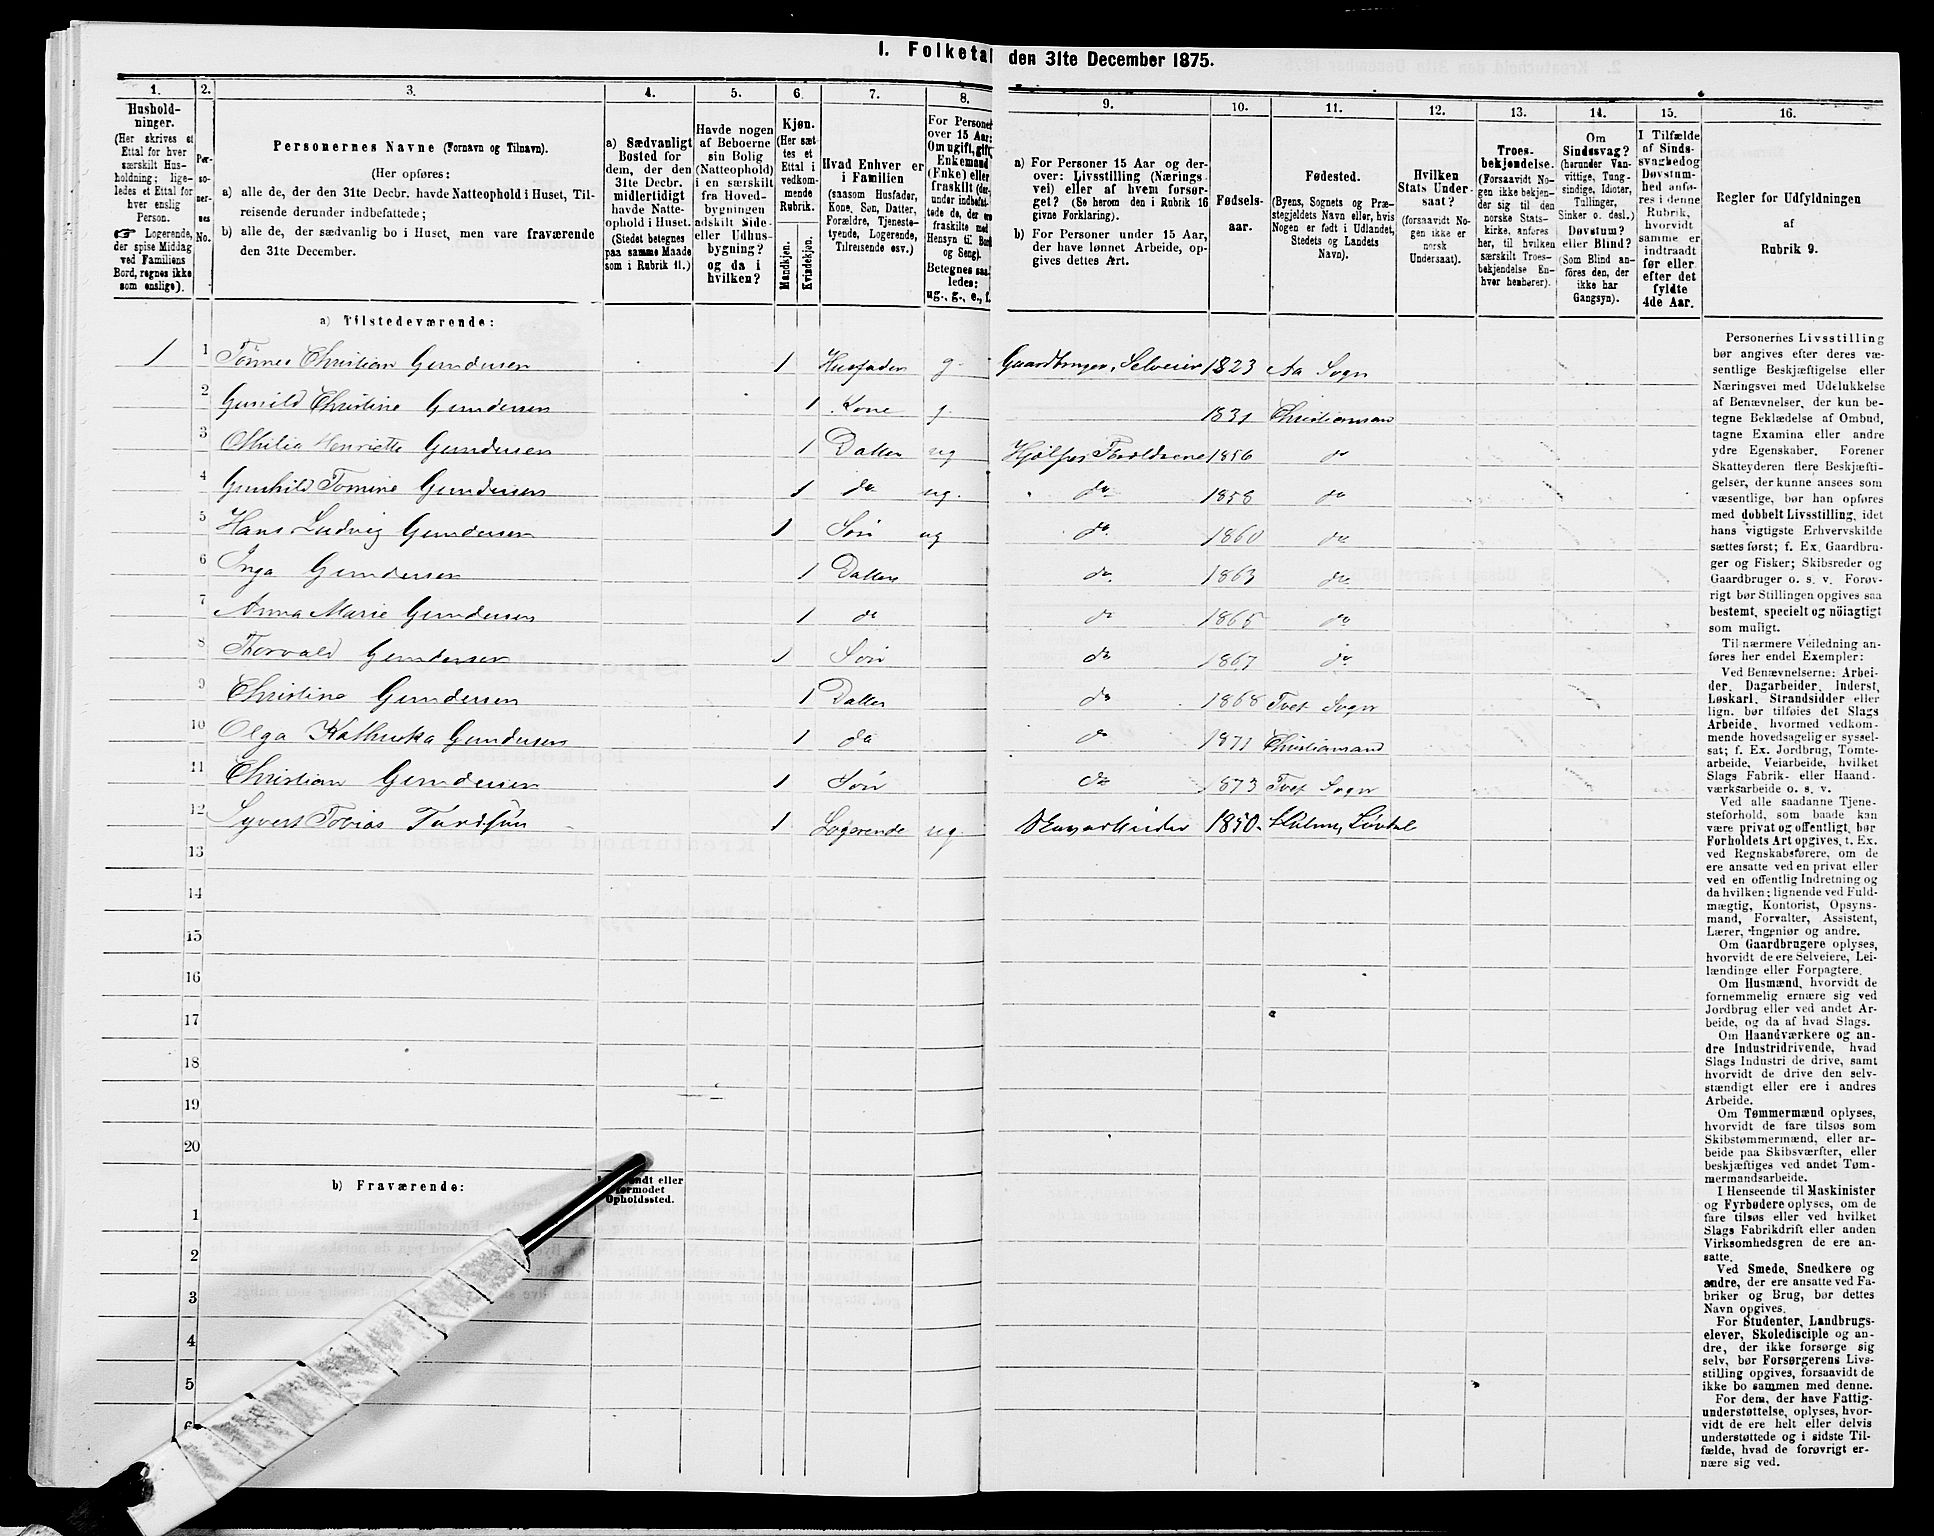 I. Folketal den 31te December 1875.
1. 2. 3. 4. 5. 6. 7. 8. 9. 10. 11. 12. 13. 14. 15. 16.
Hushold-
ninger.
(Her skrives et
Ettal for hver
særskilt Hus-
holdning; lige-
ledes et Ettal for
hver enslig
Person.
☞ Logerende,
der spise Middag
ved Familiens
Bord, regnes ikke
som enslige).
Per-
so-
ner-
nes
No.
Personernes Navne (Fornavn og Tilnavn).
(Her opføres:
a) alle de, der den 31te Decbr. havde Natteophold i Huset, Til-
reisende derunder indbefattede;
b) alle de, der sædvanlig bo i Huset, men vare fraværende
den 31te December.
a) Sædvanligt
Bosted for
dem, der den
31te Decbr.
midlertidigt
havde Natte-
ophold i Huset.
(Stedet betegnes
paa samme Maade
som i Rubrik 11.)
Havde nogen
af Beboerne
sin Bolig
(Natteophold)
i en særskilt
fra Hoved-
bygningen
adskilt Side-
eller Udhus-
bygning?
og da i
hvilken?
Kjøn.
(Her sæt-
tes et
Ettal i
vedkom-
mende
Rubrik.
Mandkjøn.
Kvindekjøn.
Hvad Enhver er
i Familien
(saasom Husfader,
Kone, Søn, Datter,
Forældre, Tjeneste-
tyende, Logerende,
Tilreisende osv.)
For Personer
over 15 Aar:
Om ugift, gift,
Enkemand
(Enke) eller
fraskilt (der-
under indbefat-
tede de, der ere
fraskilte med
Hensyn til Bord
og Seng).
Betegnes saa-
ledes:
ug., g., e., f.
a) For Personer 15 Aar og der-
over: Livsstilling (Nærings-
vei) eller af hvem forsør-
get? (Se herom den i Rubrik 16
givne Forklaring).
b) For Personer under 15 Aar,
der have lønnet Arbeide, op-
gives dettes Art.
Fødsels-
aar.
Fødested.
(Byens, Sognets og Præ-
stegjeldets Navn eller, hvis
Nogen er født i Udlandet,
Stedets og Landets
Navn).
Hvilken
Stats Under-
saat?
(forsaavidt No-
gen ikke er
norsk
Undersaat).
Troes-
bekjendelse.
(Forsaavidt No-
gen ikke bekjen-
der sig til den
norske Stats-
kirke, anføres
her, til hvilken
særskilt Troes-
bekjendelse En-
hver henhører).
Om
Sindssvag?
(herunder Van-
vittige, Tung-
sindige, Idioter,
Tullinger,
Sinker o. desl.)
Døvstum?
eller Blind?
(Som Blind an-
føres den, der
ikke har
Gangsyn).
I Tilfælde
af Sinds-
svaghedog
Døvstum-
hed anfø-
res i denne
Rubrik,
hvorvidt
samme er
indtraadt
før eller
efter det
fyldte
4de Aar.
Regler for Udfyldningen
af
Rubrik 9.
a) Tilstedeværende:
1 1 Tönnes Christian Gundersen 1 Husfader g. Gaardbruger, Selveier 1823 Aa Sogn
2 Gunild Christine Gundersen 1 Kone g. 1831 Christiansan
3 Othilia Henriette Gundersen 1 Datter ug Hjölper Forældrene 1856 do
4 Gunhild Tomine Gundersen 1 do ug. do 1858 do
5 Hans Ludvig Gundersen 1 Sön ug do 1860 do
6 Inga Gundersen 1 Datter do 1863 do
7 Anna Marie Gundersen 1 do do 1865 do
8 Thorvald Gundersen 1 Sön do 1867 do
9 Christine Gundersen 1 Datter do 1868 Tvet Sogn
10 Olga Kathinka Gundersen 1 do do 1871 Christiansand
11 Christian Gundersen 1 Sön do 1873 Tvet Sogn
12 Syvert Tobias 1 Logerende ug. 1850
13
14
15
16
17
18
19
20
b) Fraværende:
eller
formodet
Opholdssted.
1
2
3
4
5
6
Personernes Livsstilling
bør angives efter deres væ-
sentlige Beskjæftigelse eller
Næringsvei med Udelukkelse
af Benævnelser, der kun be-
tegne Beklædelse af Ombud,
tagne Examina eller andre
ydre Egenskaber. Forener
Skatteyderen flere Beskjæfti-
gelser, der kunne ansees som
væsentlige, bør han opføres
med dobbelt Livsstilling, idet
hans vigtigste Erhvervskilde
sættes først; f. Ex. Gaardbru-
ger og Fisker; Skibsreder og
Gaardbruger o. s. v. Forøv-
rigt bør Stillingen opgives saa
bestemt, specielt og nöiagtigt
som muligt.
Til nærmere Veiledning an-
føres her endel Exempler:
Ved Benævnelserne: Arbei-
der, Dagarbeider, Inderst,
Løskarl, Strandsidder eller
lign. bør tilføies det Slags
Arbeide, hvormed vedkom-
mende hovedsagelig er syssel-
sat; f. Ex. Jordbrug, Tomte-
arbeide, Veiarbeide, hvilket
Slags Fabrik- eller Haand-
værksarbeide o. s. v.
Ved alle saadanne Tjene-
steforhold, som baade kan
være privat og offentligt, bør
Forholdets Art opgives, t. Ex.
ved Regnskabsførere, om de
ere ansatte ved en privat eller
ved en offentlig Indretning og
da hvilken; lignende ved Fuld-
mægtig, Kontorist, Opsyns-
mand, Forvalter, Assistent,
Lærer, Ingeniør og andre.
Om Gaardbrugere oplyses,
hvorvidt de ere Selveiere, Lei-
lændinge eller Forpagtere.
Om Husmænd, hvorvidt de
fornemmelig ernære sig ved
Jordbrug eller ved andet Ar-
beide, og da af hvad Slags.
Om Haandværkere og an-
dre Industridrivende, hvad
Slags Industri de drive, samt
hvorvidt de drive den selv-
stændigt eller ere i andres
Arbeide.
Om Tømmermænd oplyses,
hvorvidt de fare tilsøs som
Skibstømmermænd, eller ar-
beide paa Skibsværfter, eller
beskjæftiges ved andet Tøm-
mermandsarbeide.
I Henseende til Maskinister
og Fyrbødere oplyses, om de
fare tilsøs eller ved hvilket
Slags Fabrikdrift eller anden
Virksomhedsgren de ere an-
satte.
Ved Smede, Snedkere og
andre, der ere ansatte ved Fa-
briker og Brug, bør dettes
Navn opgives.
For Studenter, Landbrugs-
elever, Skoledisciple og an-
dre, der ikke forsørge sig
selv, bør Forsørgerens Livs-
stilling opgives, forsaavidt de
ikke bo sammen med denne.
For dem, der have Fattig-
understøttelse, oplyses, hvor-
vidt de ere helt eller delvis
understøttede og i sidste Til-
fælde, hvad de forøvrigt er-
nære sig ved.